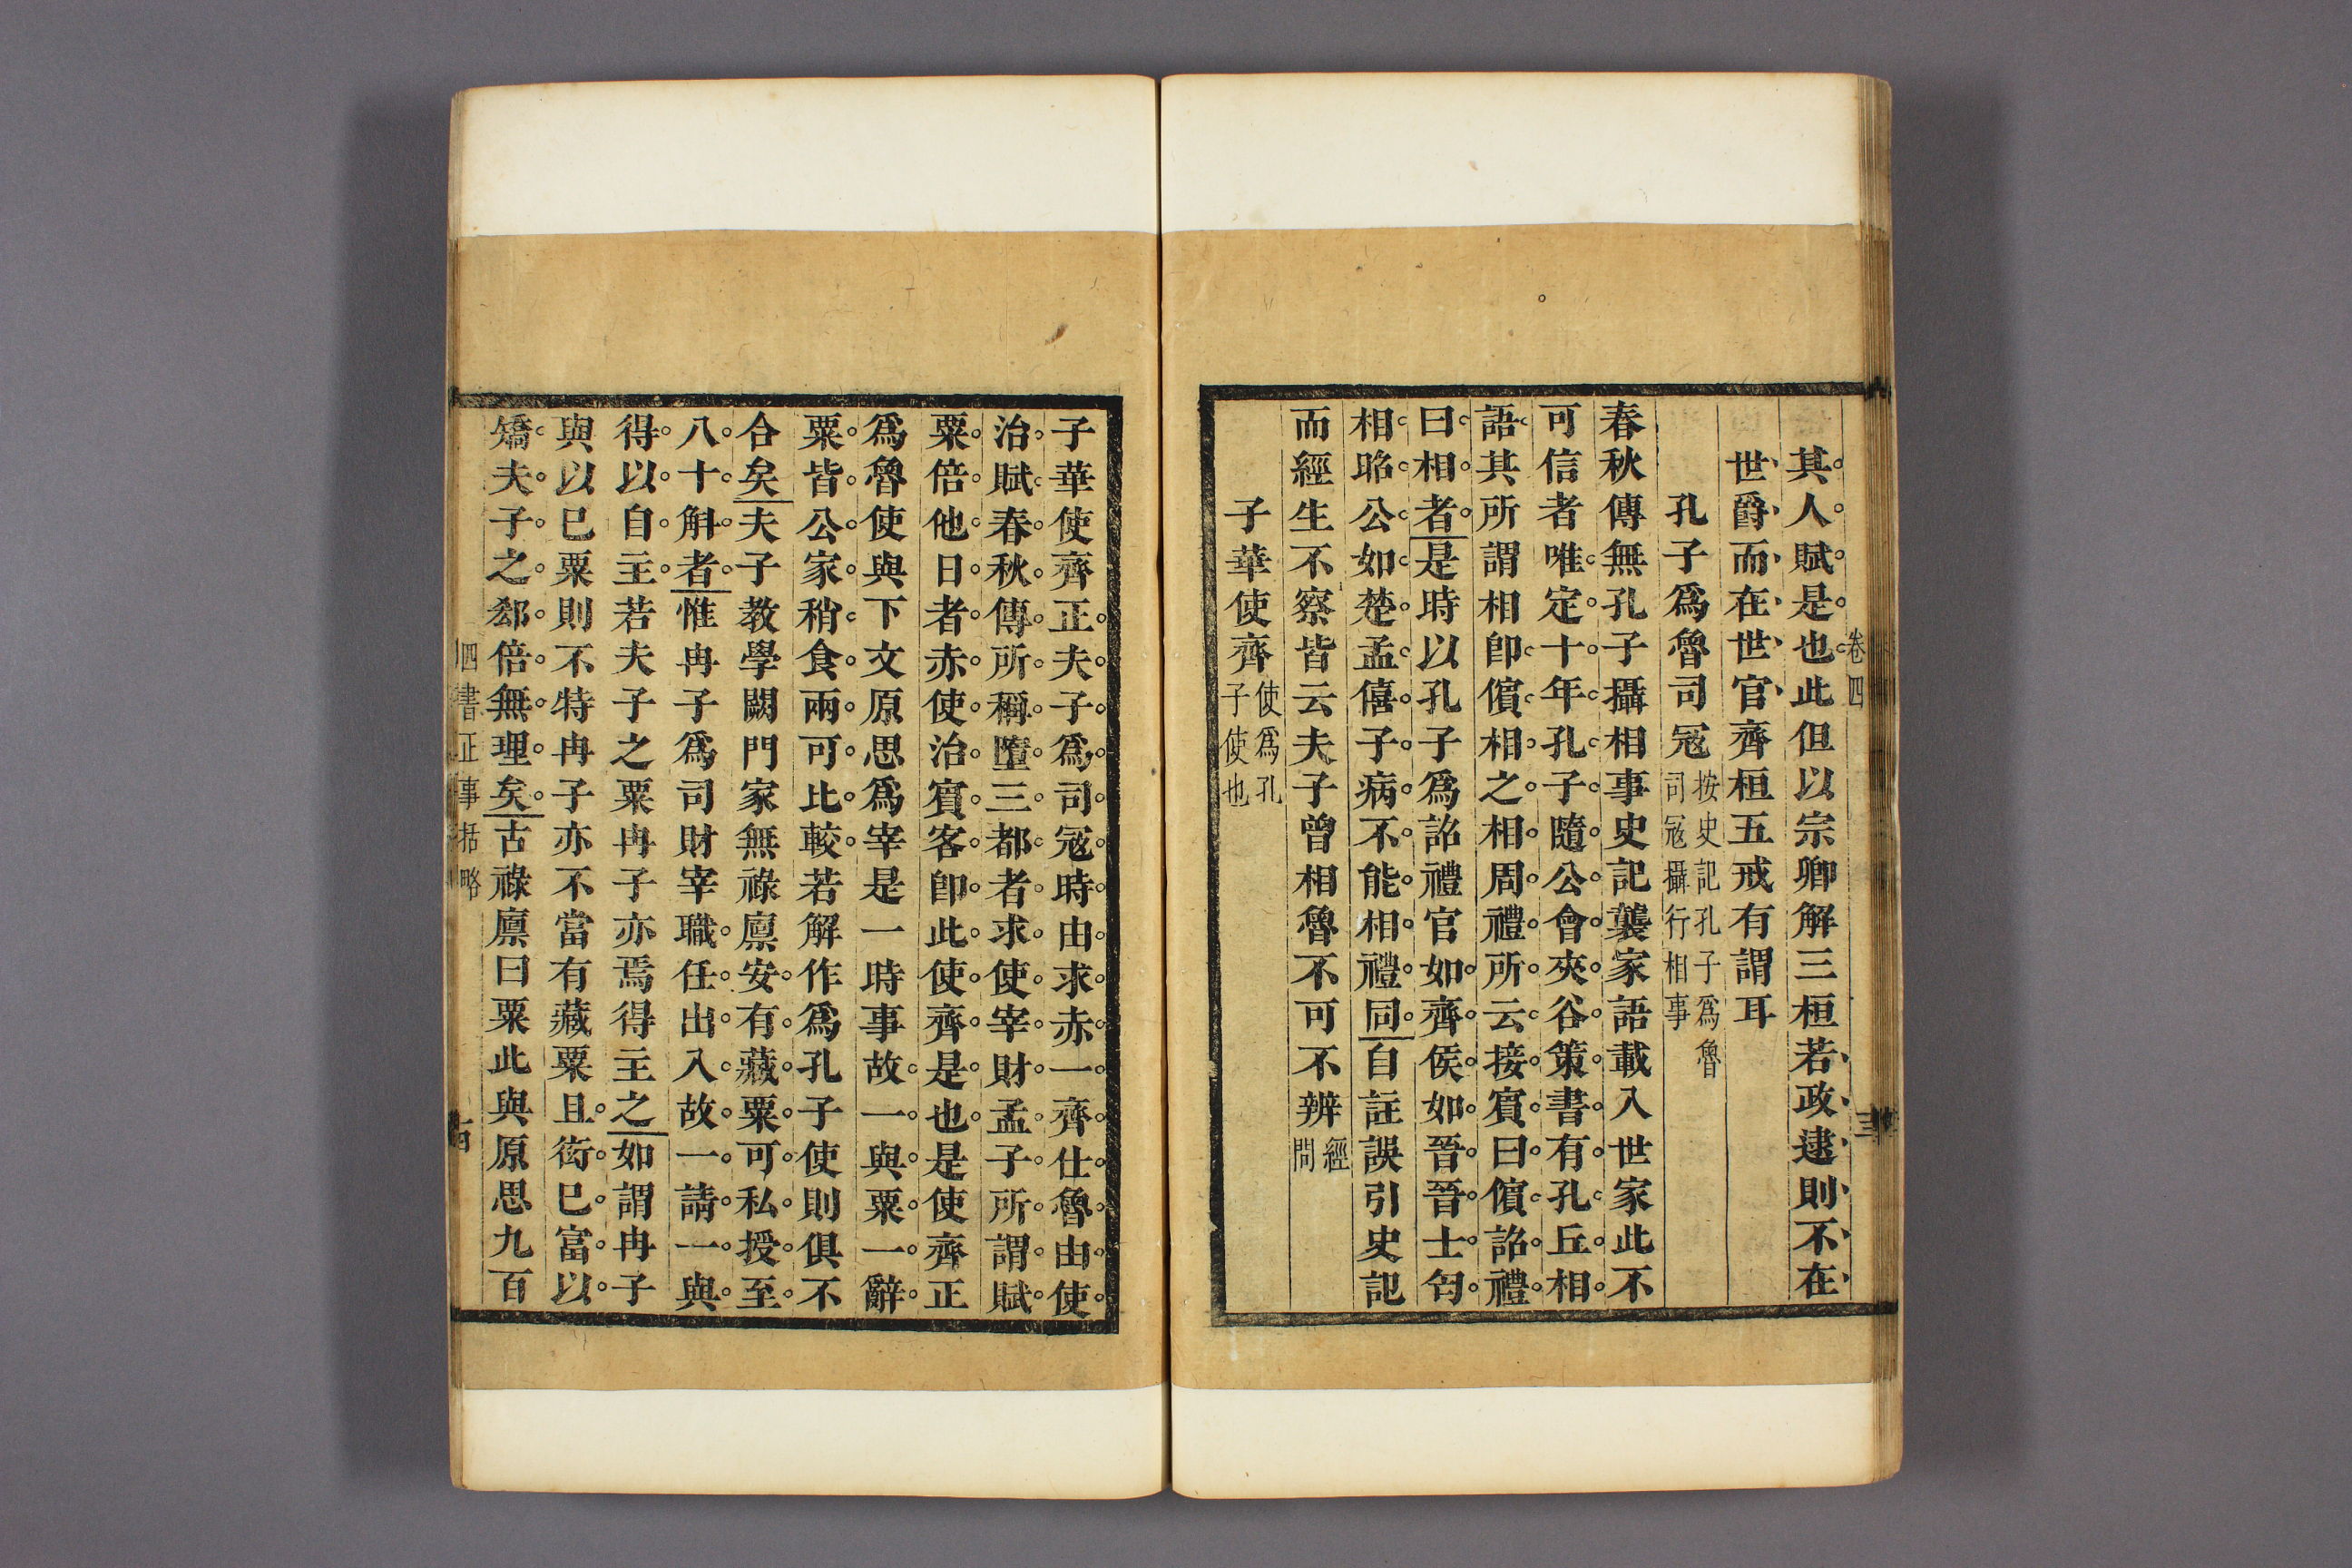 卷四
其人賦是也此但以宗卿解三桓若政逮則不在
世爵而在世官齊桓五戒有謂耳
孔子爲魯司冦按史記孔子爲魯司冦攝行相事
春秋傳無孔子攝相事史記襲家語載入世家此不
可信者唯定十年孔子隨公會夾谷策書有孔丘相
語其所謂相卽儐相之相周禮所云接賓曰儐詔禮
曰相者是時以孔子爲詔禮官如齊侯如晉晉士匄
相昭公如楚孟僖子病不能相禮同自註誤引史記
而經生不察皆云夫子曾相魯不可不辨經問
子華使齊使爲孔子使也
子華使齊正夫子爲司冦時由求赤一齊仕魯由使
治賦春秋傳所稱墮三都者求使宰財孟子所謂賦
粟倍他日者赤使治賓客卽此使齊是也是使齊正
爲魯使與下文原思爲宰是一時事故一與粟一辭
粟皆公家稍食兩可比較若解作爲孔子使則俱不
合矣夫子教學闕門家無祿廪安有藏粟可私授至
八十斛者惟冉子爲司財宰職任出入故一請一與
得以自主若夫子之粟冉子亦焉得主之如謂冉子
與以巳粟則不特冉子亦不當有藏粟且衒巳富以
矯夫子之郄倍無理矣古祿廪曰粟此與原思九百
四書正事括略